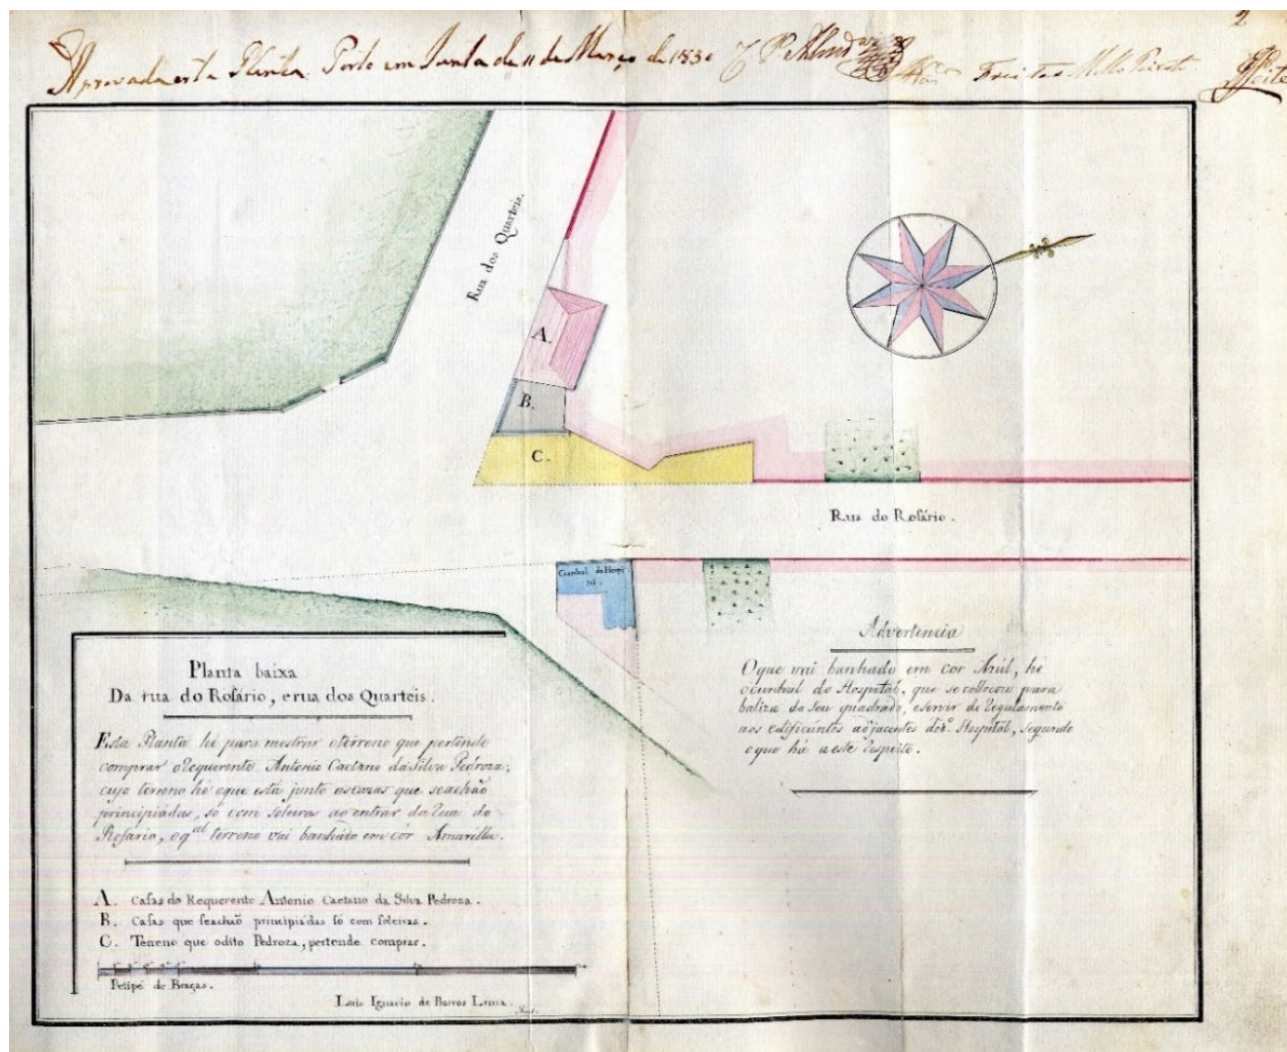 2.
Aprovada esta Planta. Porto em Junta de 11 de Março de 1830
Rua dos Quarteis.
A.
B.
C.
Rua do Rosário.
Cunhal do Hospi-
tal.
Advertencia
Oque vai banhado em cor Azúl, he
ocunhal do Hospital, que se collocou para
baliza do seu quadrado, eservir de Regulamento
aos edificantes adjacentes do Hospital, segundo
oque há aeste Respeito.
Planta baixa
Da rua do Rosário, erua dos Quarteis.
Esta Planta he para mostrar oterreno que pertende
comprar oRequerente Antonio Caetano da Silva Pedroza;
cujo terreno he oque está junto ascazas que seachão
principiádas, só com soleiras ao entrar da Rua do
Rosario, oq.al terreno vai banhádo em côr Amarélla.
A. Casas do Requerente Antonio Caetano da Silva Pedroza.
B. Casas que seachão principiádas só com soleiras.
C. Terreno que odito Pedroza, pertende comprar.
Petipé de Braças.
Luis Ignacio de Barros Lima.